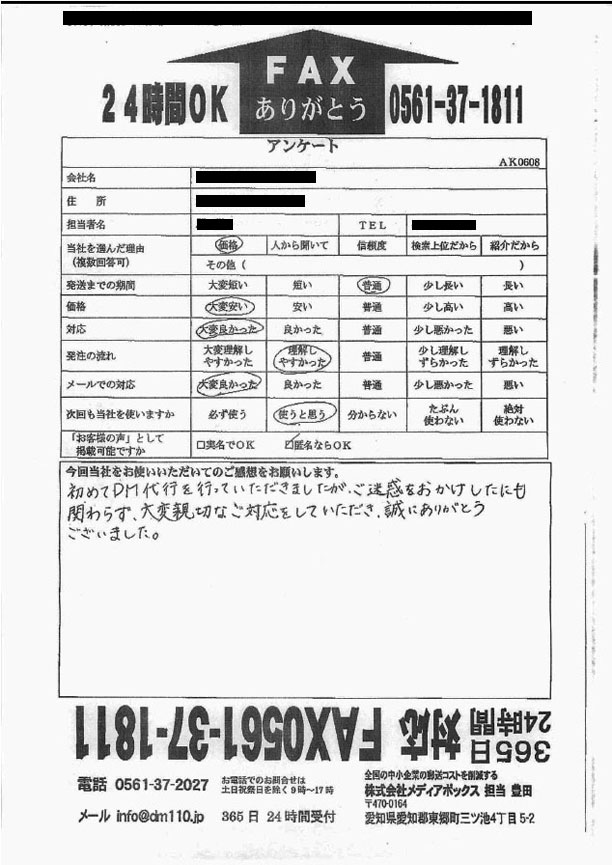 FAX
ありがとう
24時間OK
0561-37-1811
アンケート
AK0608
会社名
住　所
担当者名 TEL
当社を選んだ理由（複数回答可） 価格 人から聞いて 信頼度 検索上位だから 紹介だから
その他（ ）
発送までの期間 大変短い 短い 普通 少し長い 長い
価格 大変安い 安い 普通 少し高い 高い
対応 大変良かった 良かった 普通 少し悪かった 悪い
発注の流れ 大変理解しやすかった 理解しやすかった 普通 少し理解しずらかった 理解しずらかった
メールでの対応 大変良かった 良かった 普通 少し悪かった 悪い
次回も当社を使いますか 必ず使う 使うと思う 分からない たぶん使わない 絶対使わない
「お客様の声」として掲載可能ですか □実名でOK □匿名ならOK
今回当社をお使いいただいてのご感想をお願いします。
初めてDM代行を行っていただきましたが、ご迷惑をおかけしたにも
関わらず、大変親切なご対応をしていただき、誠にありがとう
ございました。
365日
24時間
対応
FAX0561-37-1811
電話 0561-37-2027
お電話でのお問合せは
土日祝祭日を除く9時～17時
メール info@dm110.jp 365日 24時間受付
全国の中小企業の郵送コストを削減する
株式会社メディアボックス 担当 豊田
〒470-0164
愛知県愛知郡東郷町三ツ池4丁目5-2